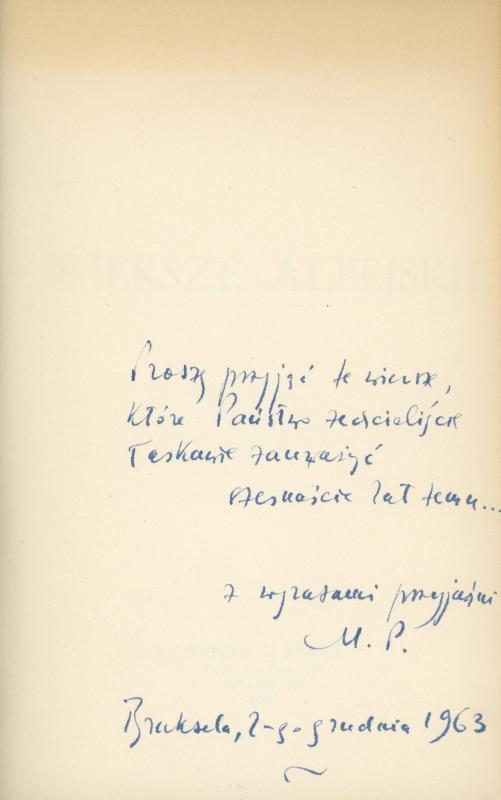 WIERSZE ALPEJSKIE
Proszę przyjąć te wiersze,
które Państwo zechcieliście
łaskawie zauważyć
szesnaście lat temu...
z wyrazami przyjaźni
M. P.
Bruksela, 2-go grudnia 1963